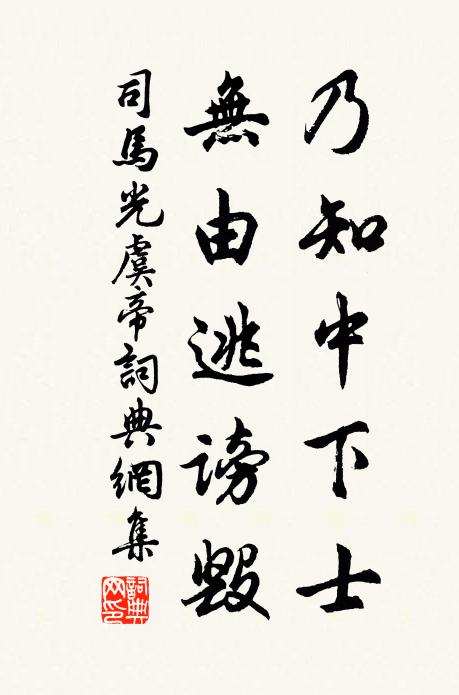 乃知中下士
無由逃謗毀
司馬光虞帝詞典網集
詞典網印